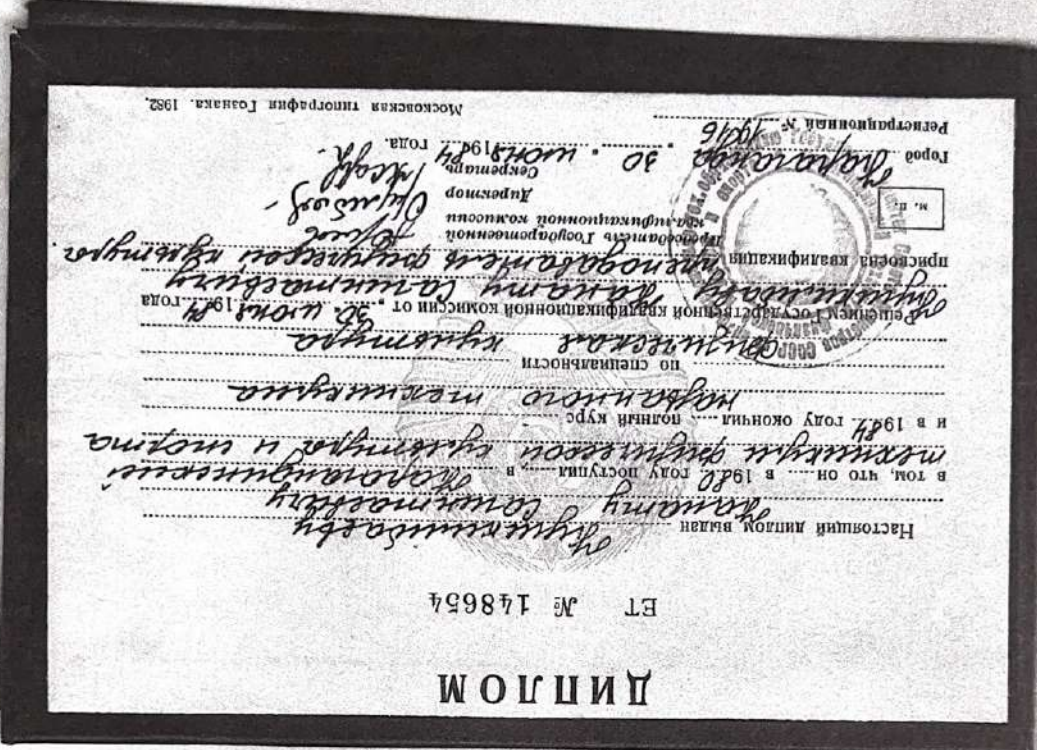 ДИПЛОМ
ЕТ № 148654
Настоящий диплом выдан
Канату
в том, что он в 1980 году поступил в Карагандинский
техникум физической культуры и спорта
и в 1984 году окончил полный курс
названного техникума
по специальности
физическая культура
Решением Государственной квалификационной комиссии от „30 июня 1984 года
Канату
присвоена квалификация преподаватель физической культуры.
Председатель Государственной
квалификационной комиссии
м. п.
Директор
Секретарь
Город Караганда 30 июня 1984 года.
Регистрационный №
Московская типография Гознака. 1982.